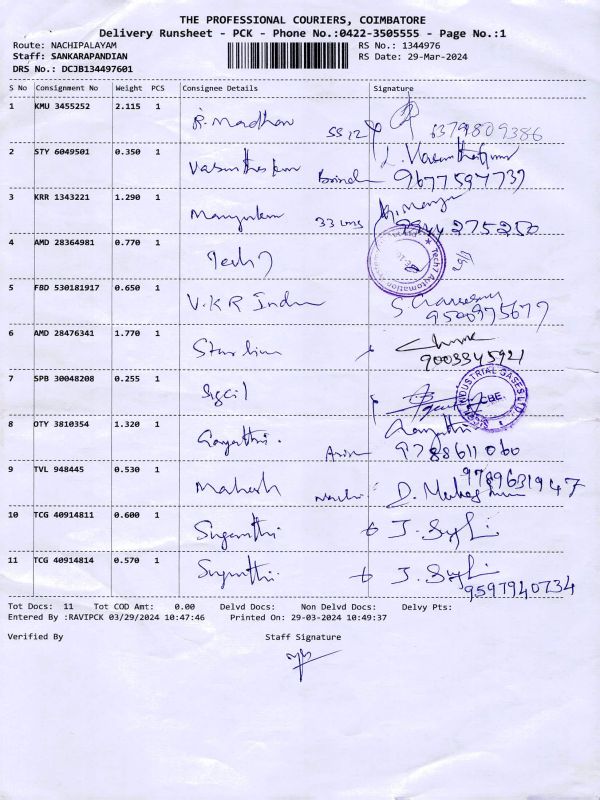 THE PROFESSIONAL COURIERS, COIMBATORE
Delivery Runsheet - PCK - Phone No.:0422-3505555 - Page No.:1
Route: NACHIPALAYAM RS No.: 1344976
Staff: SANKARAPANDIAN RS Date: 29-Mar-2024
DRS No.: DCJB134497601
S No Consignment No Weight PCS Consignee Details Signature
1 KMU 3455252 2.115 1 R. Madhan SS 12
2 STY 6049501 0.350 1 Vasunthakumar 9677597737
3 KRR 1343221 1.290 1 Manjunkum 33 9944275250
4 AMD 28364981 0.770 1 Tech
Tech Automation
5 FBD 530181917 0.650 1 V.K.R Indu 9500975679
6 AMD 28476341 1.770 1 Starlim 9003345921
7 SPB 30048208 0.255 1 Sigcil
INDUSTRIAL GASES LTD. CBE.
8 OTY 3810354 1.320 1 Gayathri. Gayathri
9788611060
9 TVL 948445 0.530 1 Mahesh 9789631947
10 TCG 40914811 0.600 1 Suganthi J. Sugi
11 TCG 40914814 0.570 1 Suganthi J. Sugi
9597940734
Tot Docs: 11 Tot COD Amt: 0.00 Delvd Docs: Non Delvd Docs: Delvy Pts:
Entered By :RAVIPCK 03/29/2024 10:47:46 Printed On: 29-03-2024 10:49:37
Verified By Staff Signature